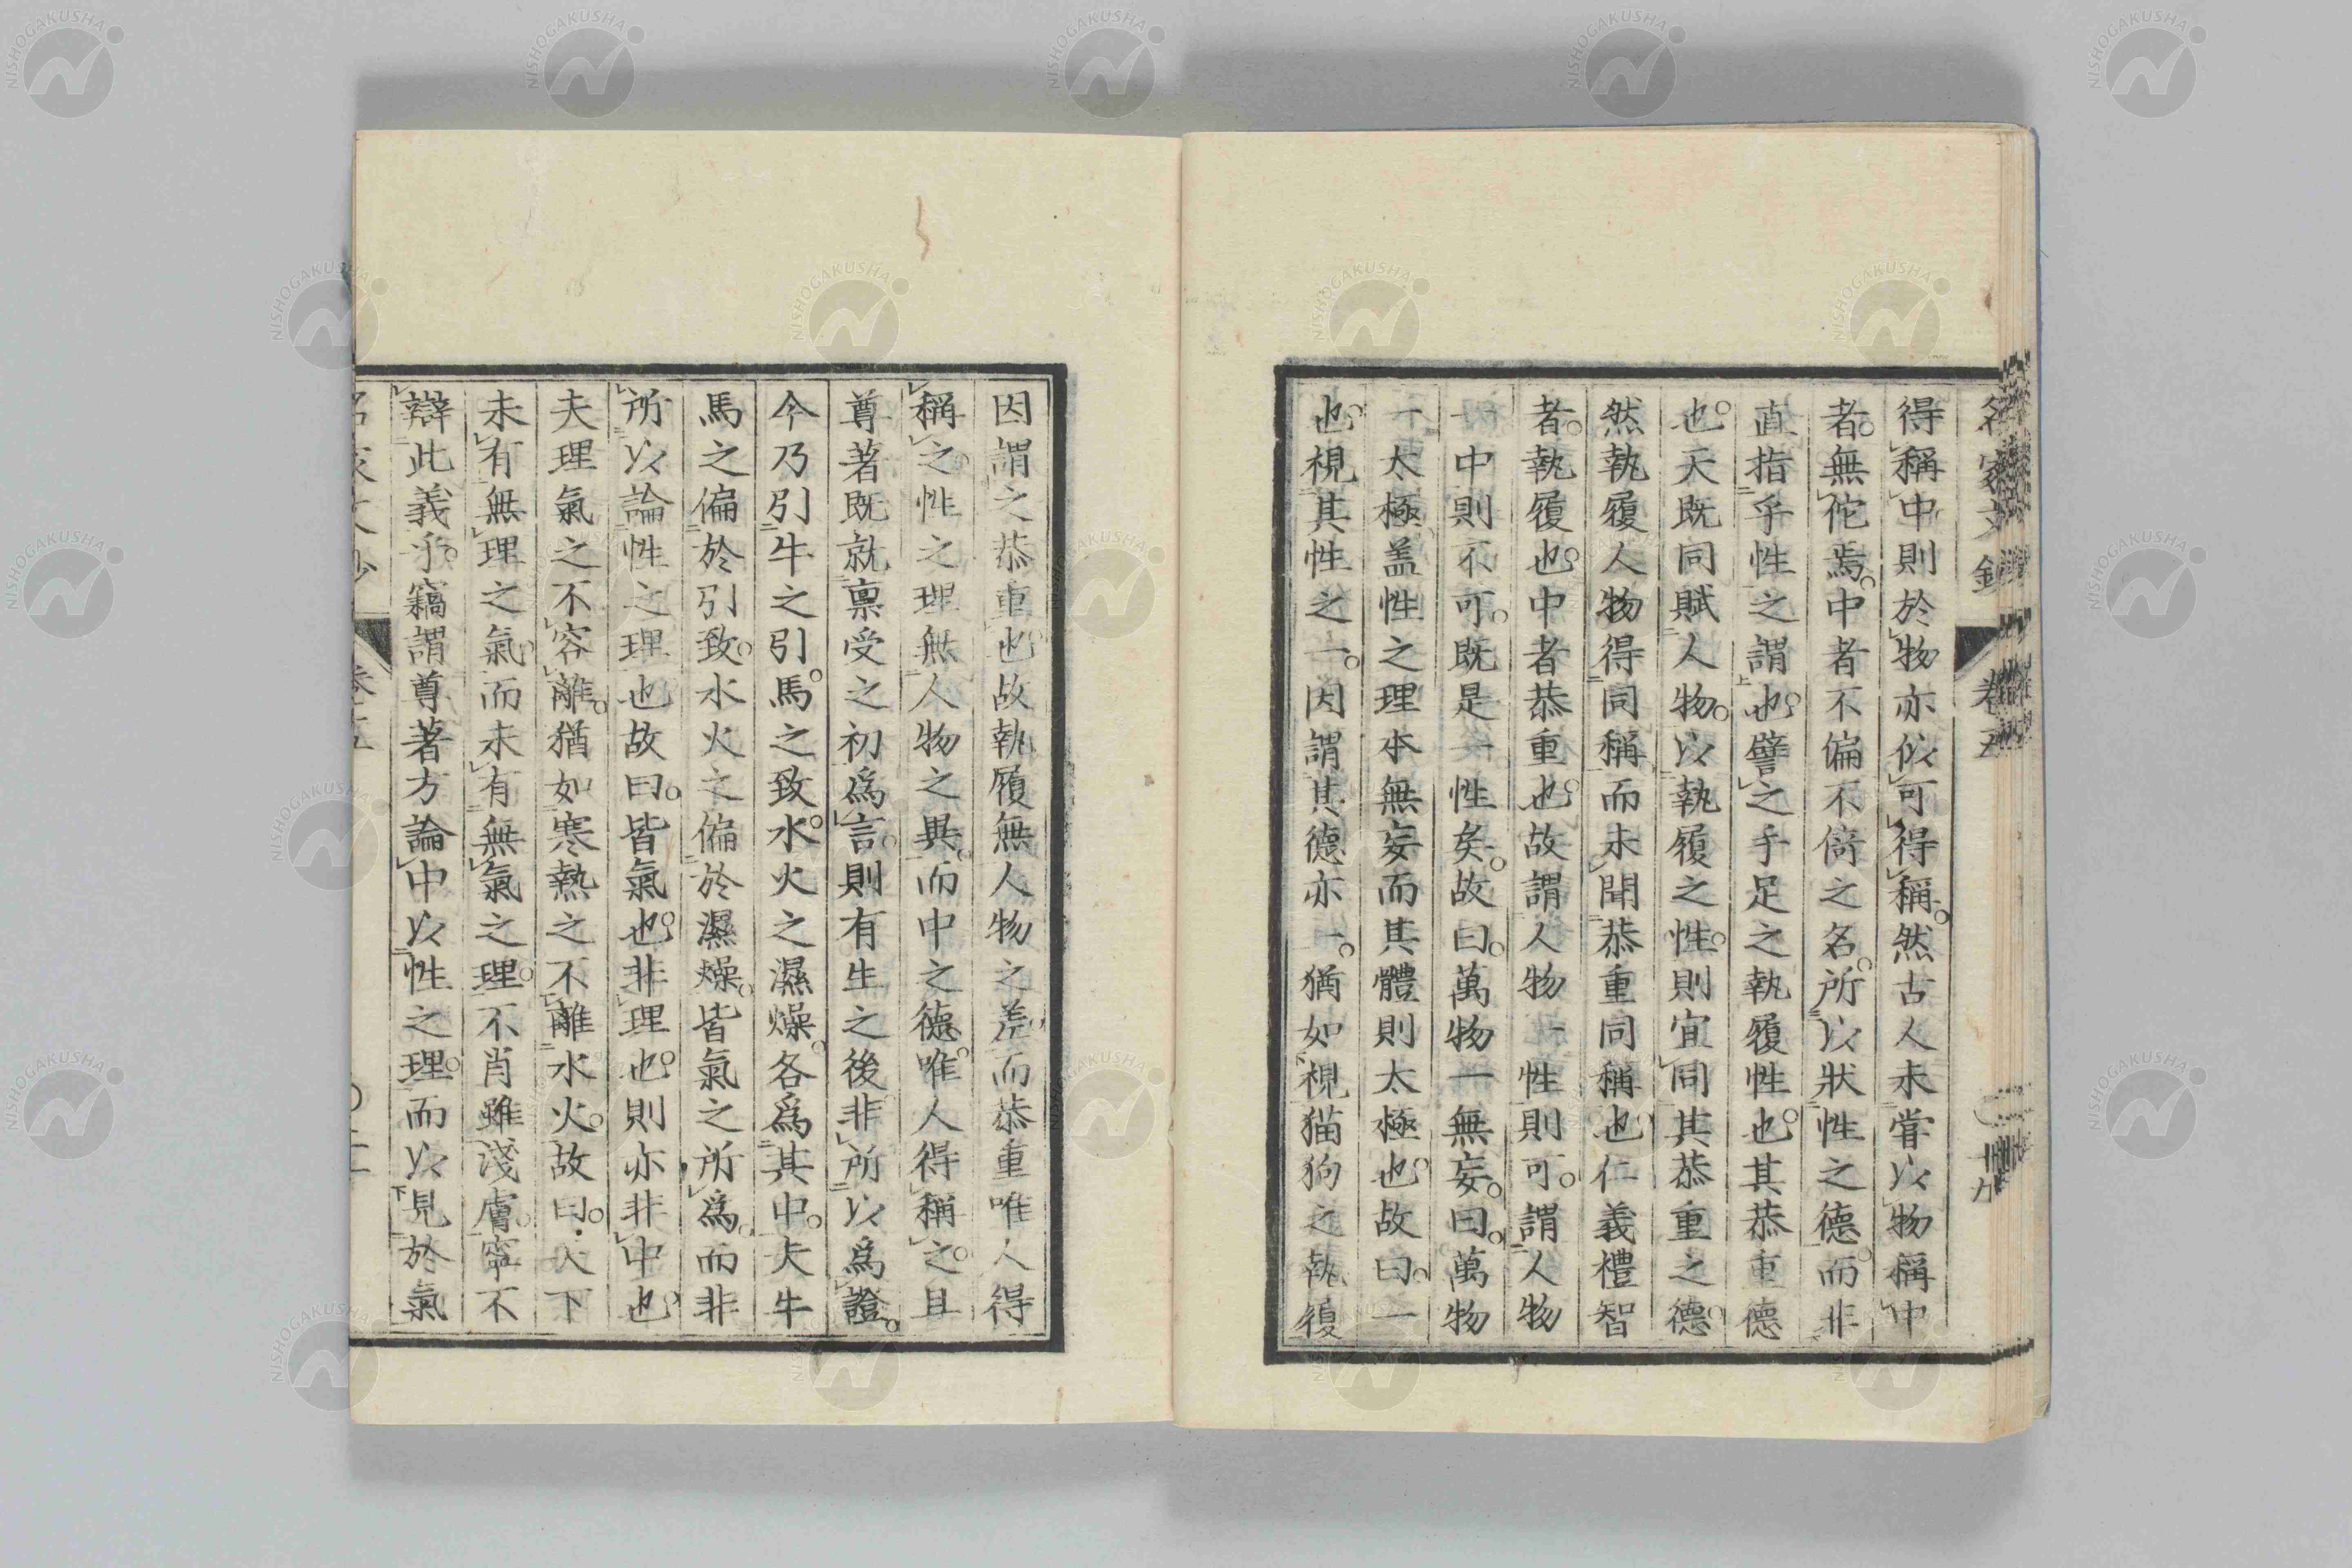 名家文鈔 卷五 十九
得稱中則於物亦似可得稱。然古人未嘗以物稱中
者。無佗焉。中者不偏不倚之名。所以狀性之德。而非
直指乎性之謂也。譬之手足之執履性也。其恭重德
也。天既同賦人物。以執履之性。則宜同其恭重之德。
然執履人物得同稱而未聞恭重同稱也仁義禮智
者。執履也。中者恭重也。故謂人物一性則可。謂人物
一中則不可。既是一性矣。故曰。萬物一無妄。曰。萬物
一太極。盖性之理本無妄而其體則太極也。故曰。一
也。視其性之一。因謂其德亦一。猶如視猫狗之執履
因謂之恭重也。故執履無人物之差。而恭重唯人得
稱之。性之理無人物之異。而中之德。唯人得稱之。且
尊著既就禀受之初爲言。則有生之後非所以爲證。
今乃引牛之引。馬之致。水火之濕燥。各爲其中。夫牛
馬之偏於引致。水火之偏於濕燥。皆氣之所爲。而非
所以論性之理也故曰。皆氣也。非理也。則亦非中也。
夫理氣之不容離。猶如寒熱之不離水火。故曰。天下
未有無理之氣。而未有無氣之理。不肖雖淺膚。寧不
辯此義乎。竊謂尊著方論中以性之理。而以見於氣